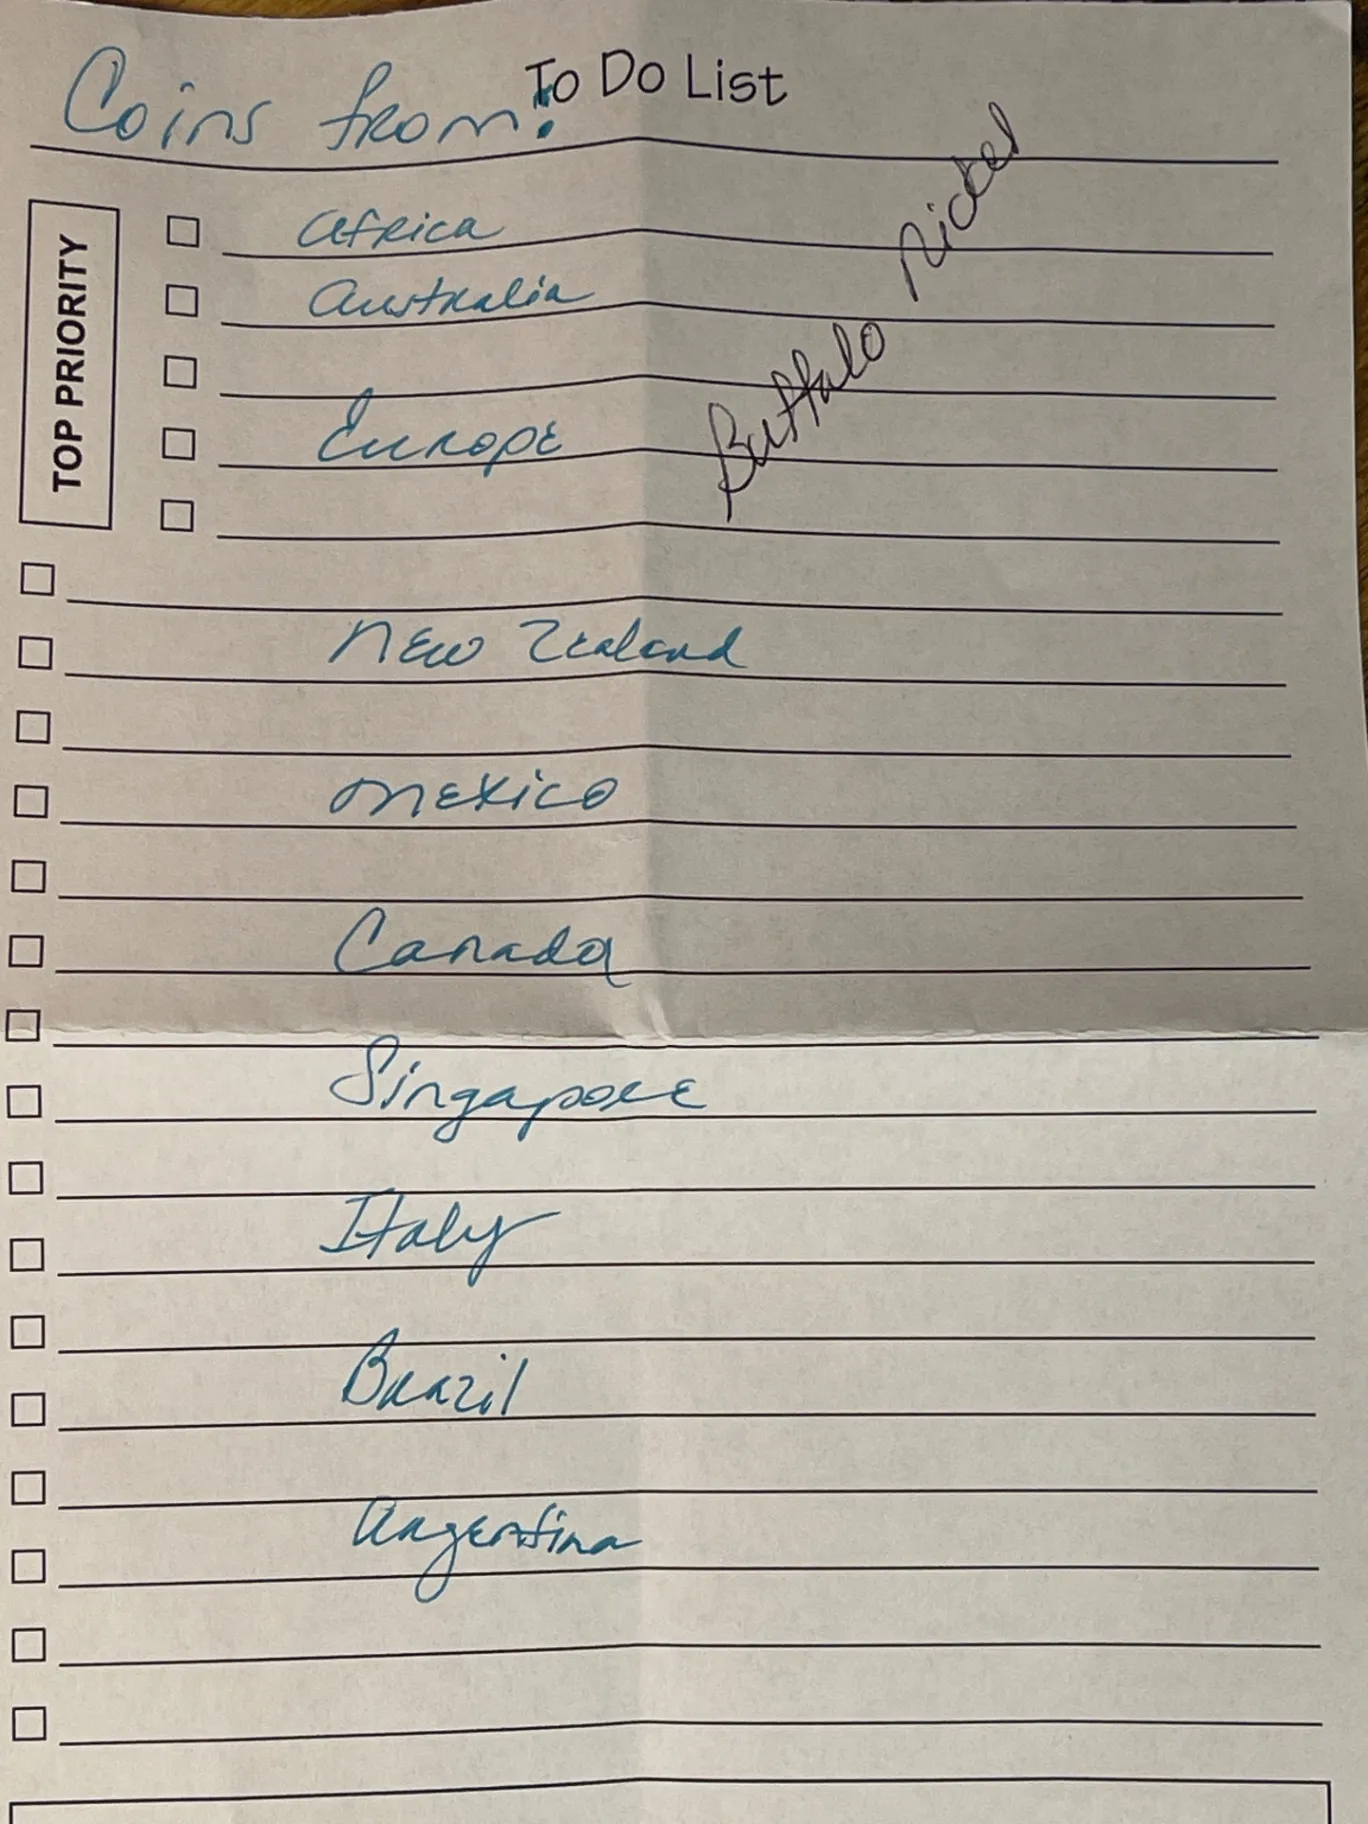 To Do List
Coins from:
TOP PRIORITY
Africa
Australia
Europe
Buffalo Nickel
New Zealand
Mexico
Canada
Singapore
Italy
Brazil
Argentina